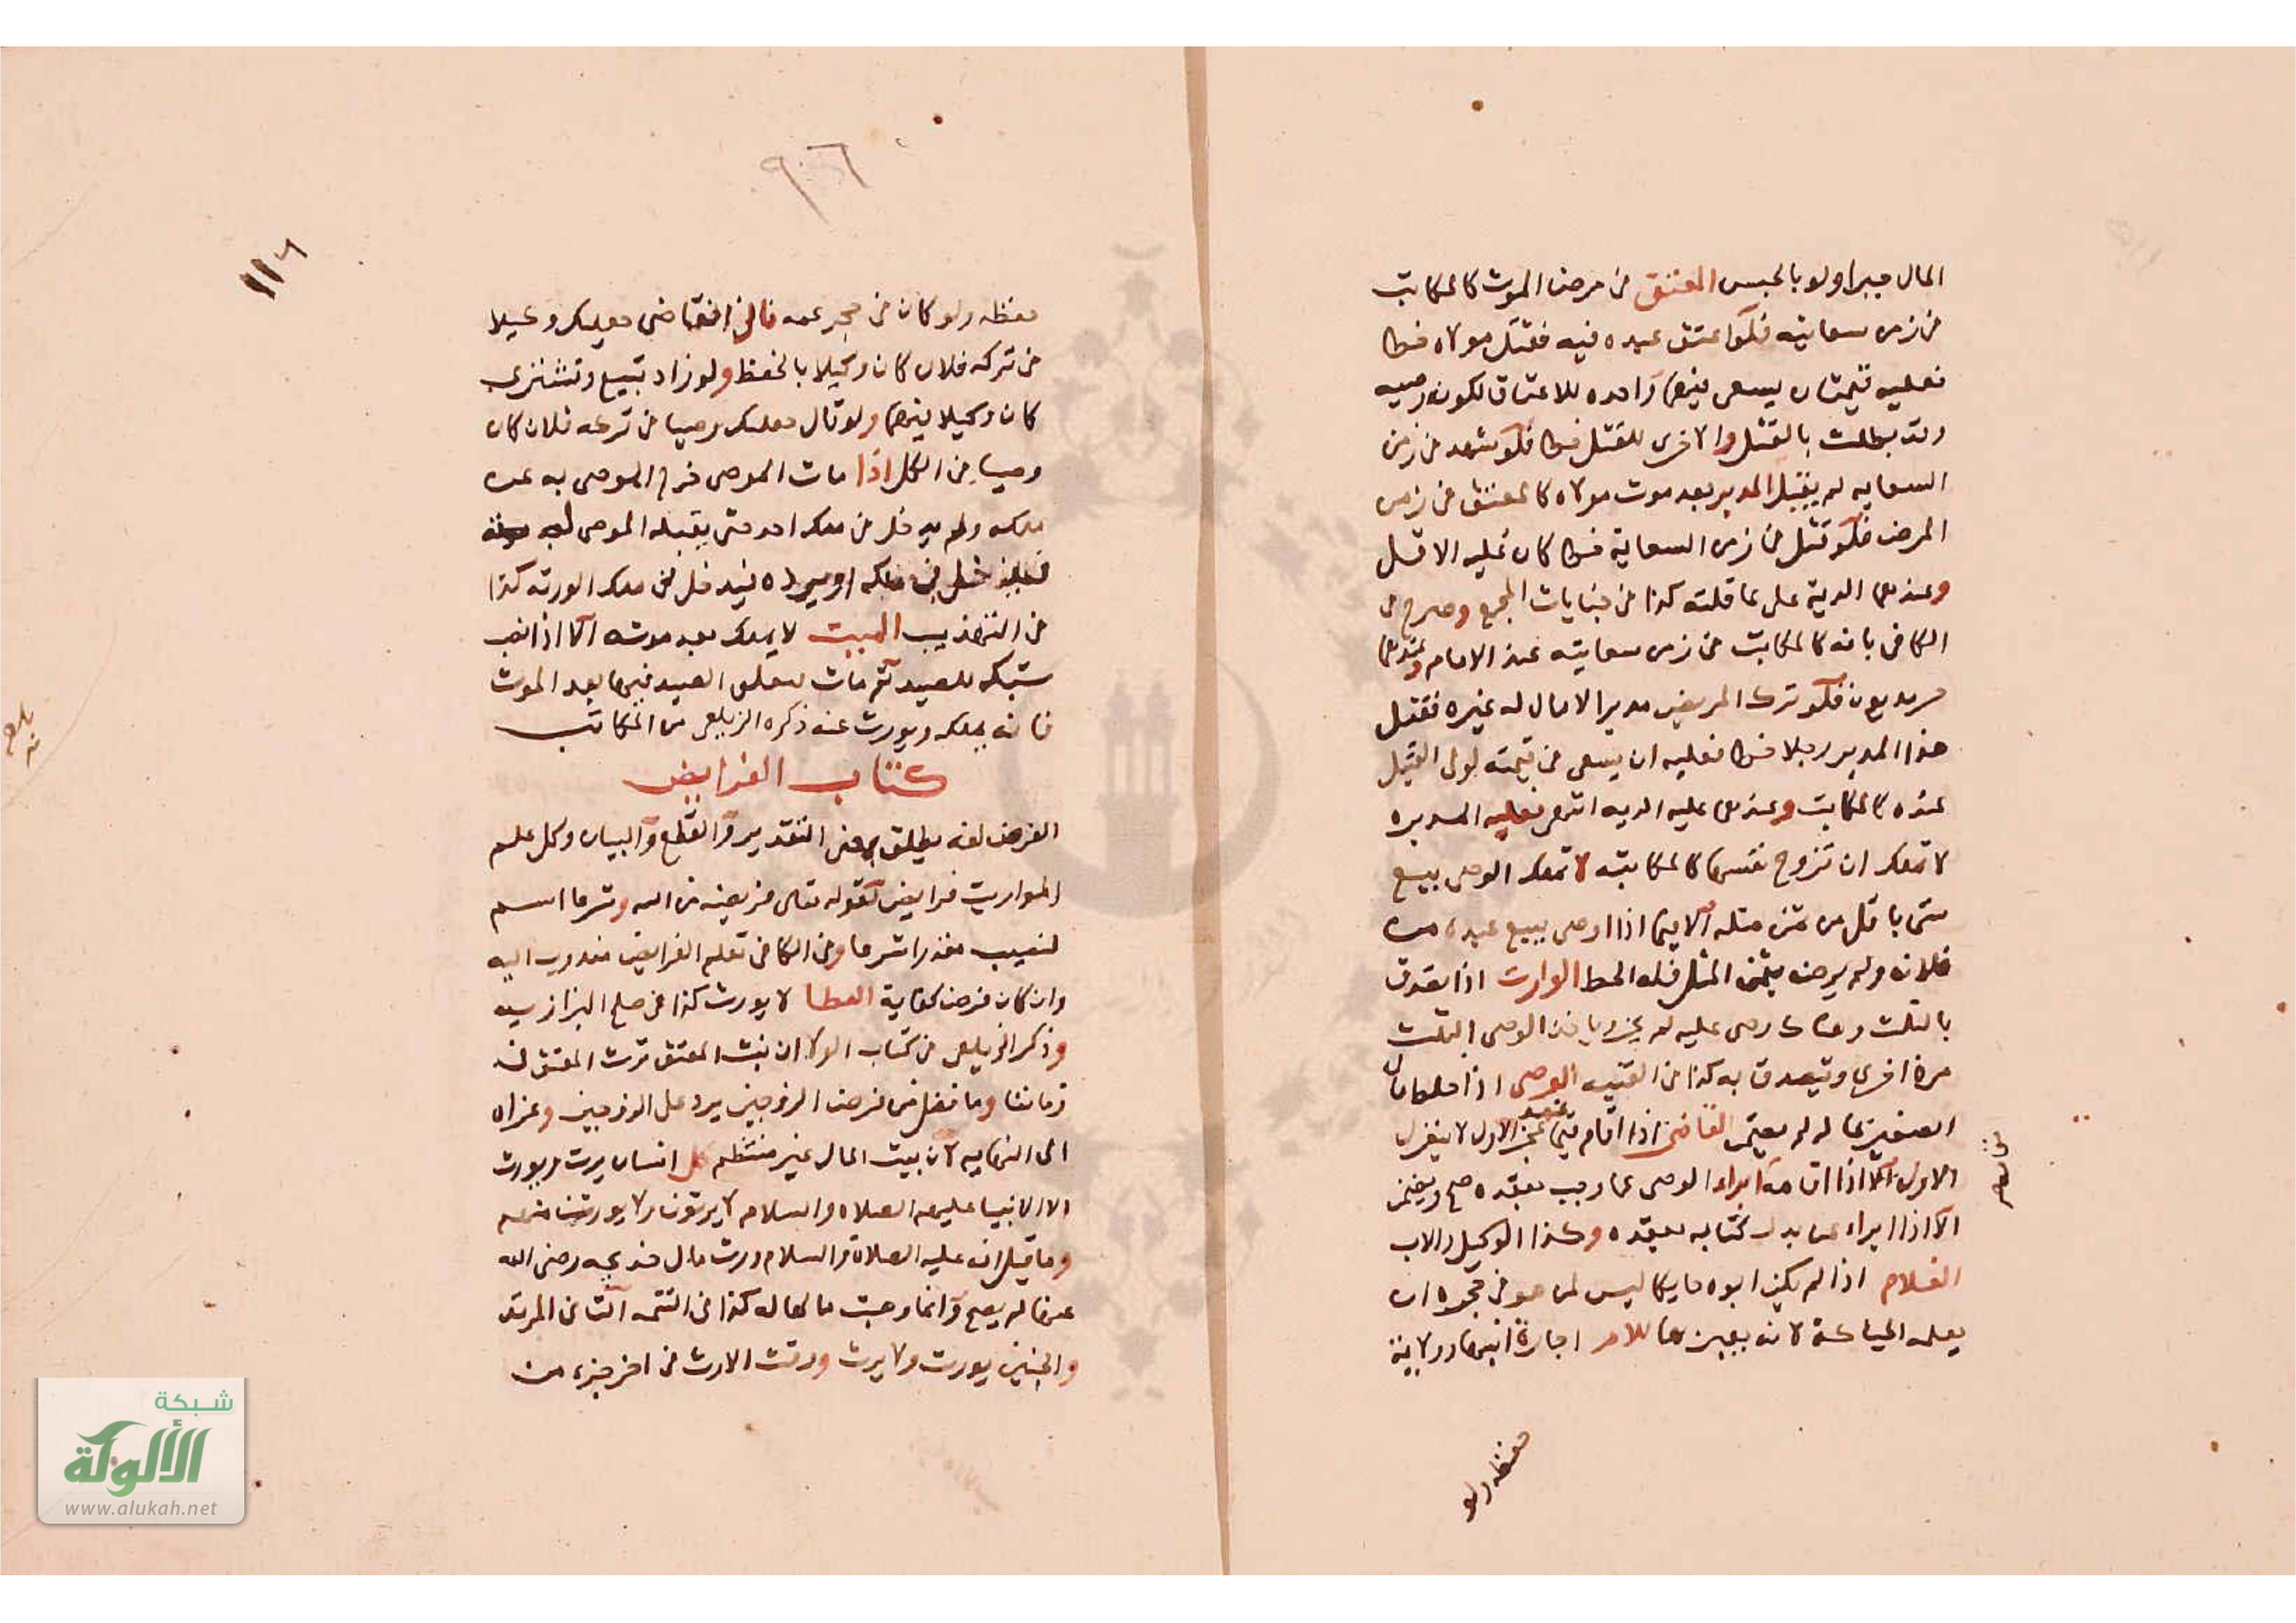 المال جبرا ولو بالحبس المعتق فى مرض الموت كالمكاتب
فى زمن سعايته فلو اعتق عبده فيه فقتل مولاه خطا
فعليه قيمتان يسعى فيهما واحده للاعتاق لكونه وصيه
وقد بطلت بالقتل والاخرى للقتل خطا فلو شهد فى زمن
السعايه لم يقبل المدبر بعد موت مولاه كالمعتق فى زمن
المرض فلو قتل فى زمن السعاية خطا كان عليه الاقل
وعندهما الدية على عاقلته كذا فى جنايات المجمع وصرح فى
الكافى بانه كالمكاتب فى زمن سعايته عند الامام وعندهما
حر مديون فلو ترك المريض مدبرا لا مال له غيره فقتل
هذا المدبر رجلا خطا فعليه ان يسعى فى قيمته لولى القتيل
عنده كالمكاتب وعندهما عليه الديه انتهى فعليه المدبره
لا تملك ان تزوج نفسها كالمكاتبه لا تملك الوصى بيع
شى باقل من ثمن مثله الا فيما اذا اوصى ببيع عبده من
فلان ولم يرض بثمن المثل فله الحط الوارث اذا تصدق
بالثلث وهناك وصى عليه لم يجز وياخذ الوصى الثلث
مرة اخرى ويتصدق به كذا فى القنيه الوصى اذا خلط مال
الصغير بماله لم يضمن القاضى اذا اقام قيما عند عجز الاول لا ينعزل
الاول الا اذا اقامه ابراء الوصى عما وجب بعقده صح ويضمن
الا اذا ابراء عن بدل كتابه بعقده وكذا الوكيل والاب
الغلام اذا لم يكن ابوه حايكا ليس لمن هو فى حجره ان
يعلمه الحياكة لانه يعير بها للام اجارة ابنها وولاية
حفظه ولو
حفظه ولو كان فى حجر عمه قال القاضى جعلتك وكيلا
فى تركه فلان كان وكيلا بالحفظ ولو زاد تبيع وتشترى
كان وكيلا فيهما ولو قال جعلتك وصيا فى تركه فلان كان
وصيا فى الكل اذا مات الموصى خرج الموصى به عن
ملكه ولم يدخل فى ملك احد حتى يقبله الموصى له
فيدخل فى ملكه او يرده فيدخل فى ملك الورثه كذا
فى التهذيب الميت لا يملك بعد موته الا اذا نصب
شبكه للصيد ثم مات فتعلق الصيد فيها بعد الموت
فانه يملكه ويورث عنه ذكره الزيلعى من المكاتب
كتاب الفرايض
الفرض لغه يطلق بمعنى التقدير والقطع والبيان وكل علم
المواريث فرايض لقوله تعالى فريضه من الله وشرعا اسم
لنصيب مقدر شرعا وفى الكافى تعلم الفرايض مندوب اليه
وان كان فرض كفاية العطا لا يورث كذا فى صلح البزازيه
وذكر الزيلعى فى كتاب الولا ان بنت المعتق ترث المعتق فى
زماننا وما فضل من فرض الزوجين يرد على الزوجين وعزاه
الى النهايه لان بيت المال غير منتظم كل انسان يرث ويورث
الا الانبيا عليهم الصلاه والسلام لا يرثون ولا يورث منهم
وما قيل انه عليه الصلاة والسلام ورث مال خديجه رضى الله
عنها لم يصح وانما وهبت مالها له كذا فى التتمه الثانى المرتد
والجنين يورث ولا يرث ووقت الارث فى اخر جزء من
١١٦
شبكة
الألوكة
www.alukah.net